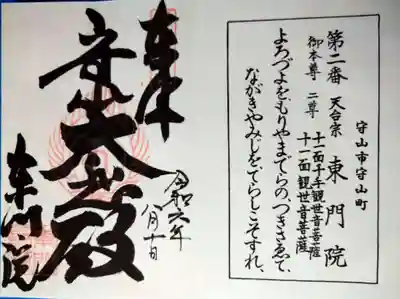 守山市守山町
第二番 天台宗 東門院
御本尊 二尊
十一面千手観世音菩薩
十一面観世音菩薩
よろづよをもりやまでらの、つきさゑて、
ながきやみじをてらしこそすれ、
奉拝
大悲殿
令和六年
八月十日
東門院